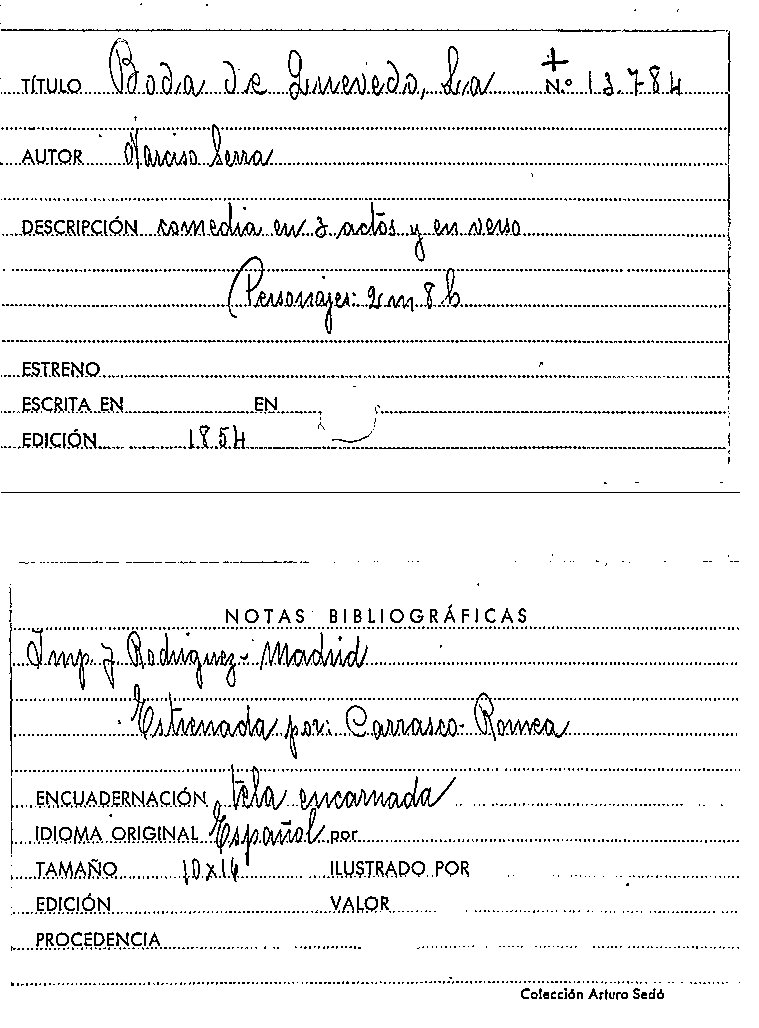 TÍTULO Boda de Quevedo, La + N.º 13.784
AUTOR Narciso Serra
DESCRIPCIÓN comedia en 3 actos y en verso
Personajes: 2 m 8 h
ESTRENO
ESCRITA EN EN
EDICIÓN 1854
NOTAS BIBLIOGRÁFICAS
Imp. J. Rodriguez - Madrid
Estrenada por: Carrasco - Romea
ENCUADERNACIÓN tela encarnada
IDIOMA ORIGINAL Español por
TAMAÑO 10x16 ILUSTRADO POR
EDICIÓN VALOR
PROCEDENCIA
Colección Arturo Sedó